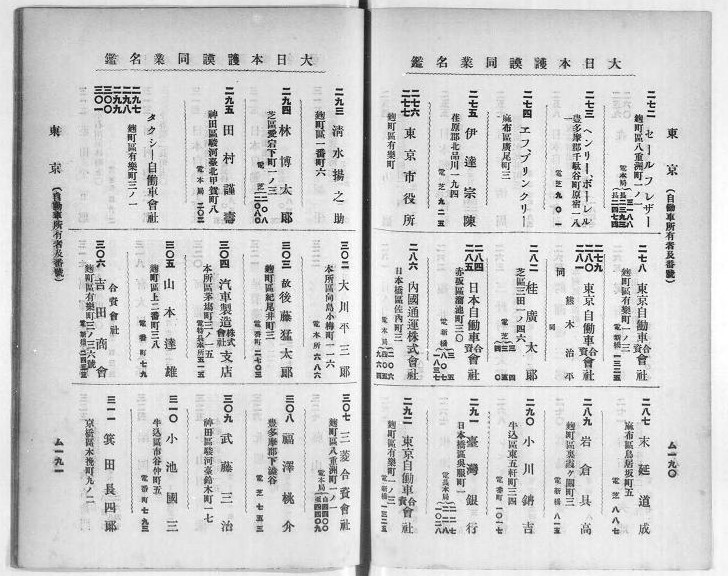 大日本護謨同業名鑑
東京(自動車所有者及番號)
二七二 セールフレザー
麴町區八重洲町一ノ一
二七三 ヘンリー、ボーレル
豊多摩郡千駄ヶ谷町原宿一八
電芝九〇一
二七四 エフ、ブリンクリー
麻布區廣尾町三
電芝九二五
二七五 伊達宗陳
荏原郡北品川一九四
二七六
二七七 東京市役所
麴町區有樂町
二七八 東京自動車合資會社
麴町區有樂町一ノ三
電新橋一三二五
二七九
二八〇
二八一 東京自動車合資會社
同 熊木治平
二八二 桂廣太郎
芝區三田一ノ四六
二八四
二八五 日本自動車合資會社
赤坂區溜池町三〇
二八六 內國通運株式會社
日本橋區佐內町三
二八七 末延道成
麻布區鳥居坂町五
電芝八八七
二八九 岩倉具高
麴町區裏霞ヶ關町三
二九〇 小川鑄吉
牛込區東五軒町三四
電番町一〇一七
二九一 臺灣銀行
日本橋區吳服町一
二九二 東京自動車合資會社
麴町區有樂町一ノ三
電新橋一三二五
ム一九〇
大日本護謨同業名鑑
二九三 淸水揚之助
麴町區一番町六
二九四 林博太郞
芝區愛宕下町一ノ三
二九五 田村謹壽
神田區駿河臺北甲賀町八
電本局二〇二
二九七
二九八
二九九
三〇〇
三〇一 タクシー自働車會社
麴町區有樂町三ノ一
三〇二 大川平三郞
本所區向島小梅町一一六
電本所六八六
三〇三 故後藤猛太郞
麴町區紀尾井町三
電番町二七〇三
三〇四 汽車製造株式會社支店
本所區茅場町三ノ一五
三〇五 山本達雄
麴町區上二番町三八
電番町七九
三〇六 合資會社吉田商會
麴町區有樂町三ノ三六號
三〇七 三菱合資會社
麴町區八重洲町一ノ一
三〇八 福澤桃介
豊多摩郡下澁谷
電芝七五三
三〇九 武藤三治
神田區駿河臺鈴木町一七
三一〇 小池國三
牛込區市谷仲町五
電番町七九三
三一一 箕田長四郞
京橋區木挽町九ノ二
東京(自動車所有者及番號)
ム一九一